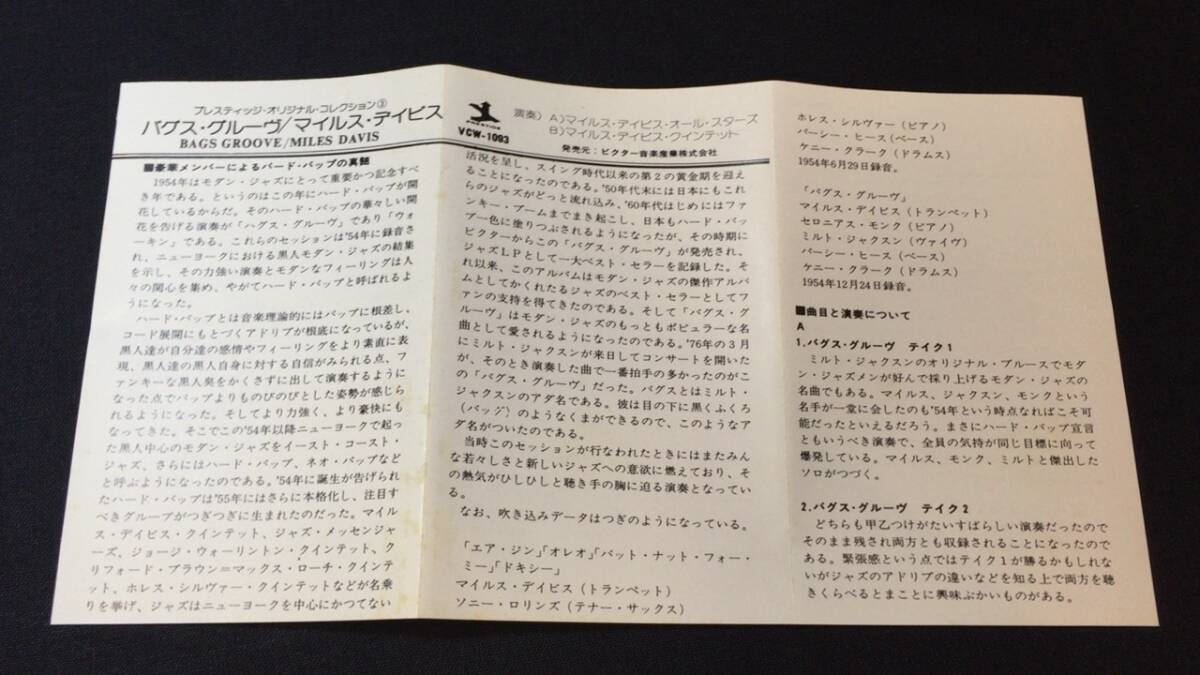 プレスティッジ・オリジナル・コレクション③
バグス・グルーヴ/マイルス・デイビス
BAGS GROOVE/MILES DAVIS
■豪華メンバーによるハード・バップの真髄
1954年はモダン・ジャズにとって重要かつ記念すべ
き年である。というのはこの年にハード・バップが開
花しているからだ。そのハード・バップの華々しい開
花を告げる演奏が「バグス・グルーヴ」であり「ウォ
ーキン」である。これらのセッションは'54年に録音さ
れ、ニューヨークにおける黒人モダン・ジャズの結集
を示し、その力強い演奏とモダンなフィーリングは人
々の関心を集め、やがてハード・バップと呼ばれるよ
うになった。
ハード・バップとは音楽理論的にはバップに根差し、
コード展開にもとづくアドリブが根底になっているが、
黒人達が自分達の感情やフィーリングをより素直に表
現、黒人達の黒人自身に対する自信がみられる点、フ
ァンキーな黒人臭をかくさずに出して演奏するように
なった点でバップよりものびのびとした姿勢が感じら
れるようになった。そしてより力強く、より豪快にも
なってきた。そこでこの'54年以降ニューヨークで起っ
た黒人中心のモダン・ジャズをイースト・コースト・
ジャズ、さらにはハード・バップ、ネオ・バップなど
と呼ぶようになったのである。'54年に誕生が告げられ
たハード・バップは'55年にはさらに本格化し、注目す
べきグループがつぎつぎに生まれたのだった。マイル
ス・デイビス・クインテット、ジャズ・メッセンジャ
ーズ、ジョージ・ウォーリントン・クインテット、ク
リフォード・ブラウン=マックス・ローチ・クインテ
ット、ホレス・シルヴァー・クインテットなどが名乗
りを挙げ、ジャズはニューヨークを中心にかつてない
PRESTIGE
VCW-1093
演奏）A)マイルス・デイビス・オール・スターズ
B)マイルス・デイビス・クインテット
発売元：ビクター音楽産業株式会社
活況を呈し、スイング時代以来の第2の黄金期を迎え
ることになったのである。'50年代末には日本にもこれ
らのジャズがどっと流れ込み、'60年代はじめにはファ
ンキー・ブームまでまき起こし、日本もハード・バッ
プ一色に塗りつぶされるようになったが、その時期に
ビクターからこの「バグス・グルーヴ」が発売され、
ジャズLPとして一大ベスト・セラーを記録した。そ
れ以来、このアルバムはモダン・ジャズの傑作アルバ
ムとしてかくれたるジャズのベスト・セラーとしてフ
ァンの支持を得てきたのである。そして「バグス・グ
ルーヴ」はモダン・ジャズのもっともポピュラーな名
曲として愛されるようになったのである。'76年の3月
にミルト・ジャクスンが来日してコンサートを開いた
が、そのとき演奏した曲で一番拍手の多かったのがこ
の「バグス・グルーヴ」だった。バグスとはミルト・
ジャクスンのアダ名である。彼は目の下に黒くふくろ
（バッグ）のようなくまができるので、このようなア
ダ名がついたのである。
当時このセッションが行なわれたときにはまたみん
な若々しさと新しいジャズへの意欲に燃えており、そ
の熱気がひしひしと聴き手の胸に迫る演奏となってい
る。
なお、吹き込みデータはつぎのようになっている。
「エア・ジン」「オレオ」「バット・ナット・フォー・
ミー」「ドキシー」
マイルス・デイビス（トランペット）
ソニー・ロリンズ（テナー・サックス）
ホレス・シルヴァー（ピアノ）
パーシー・ヒース（ベース）
ケニー・クラーク（ドラムス）
1954年6月29日録音。
「バグス・グルーヴ」
マイルス・デイビス（トランペット）
セロニアス・モンク（ピアノ）
ミルト・ジャクスン（ヴァイヴ）
パーシー・ヒース（ベース）
ケニー・クラーク（ドラムス）
1954年12月24日録音。
■曲目と演奏について
A
1.バグス・グルーヴ テイク1
ミルト・ジャクスンのオリジナル・ブルースでモダ
ン・ジャズメンが好んで採り上げるモダン・ジャズの
名曲でもある。マイルス、ジャクスン、モンクという
名手が一堂に会したのも'54年という時点なればこそ可
能だったといえるだろう。まさにハード・バップ宣言
ともいうべき演奏で、全員の気持が同じ目標に向って
爆発している。マイルス、モンク、ミルトと傑出した
ソロがつづく。
2.バグス・グルーヴ テイク2
どちらも甲乙つけがたいすばらしい演奏だったので
そのまま残され両方とも収録されることになったので
ある。緊張感という点ではテイク1が勝るかもしれな
いがジャズのアドリブの違いなどを知る上で両方を聴
きくらべるとまことに興味ぶかいものがある。